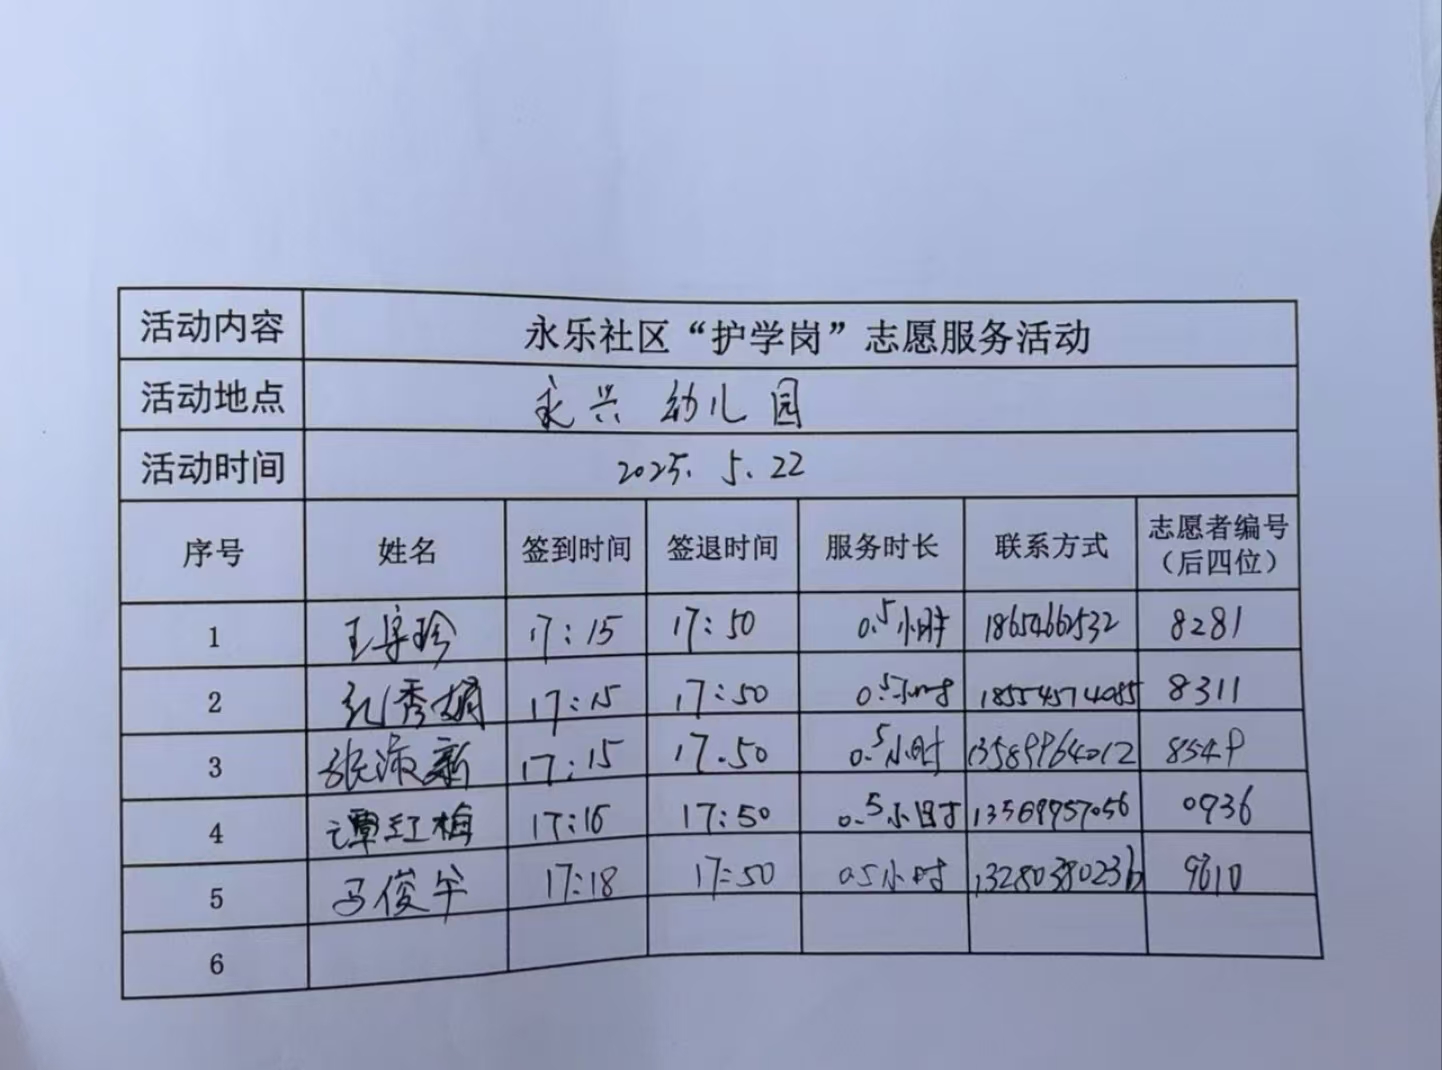 活动内容 永乐社区“护学岗”志愿服务活动
活动地点 永兴幼儿园
活动时间 2025.5.22
序号 姓名 签到时间 签退时间 服务时长 联系方式 志愿者编号（后四位）
1 17:15 17:50 0.5小时 18654662532 8281
2 孔秀娟 17:15 17:50 0.5小时 18554574085 8311
3 17:15 17.50 0.5小时 13589964012 8549
4 谭红梅 17:16 17:50 0.5小时 13569957056 0936
5 17:18 17:50 0.5小时 13280380236 9610
6